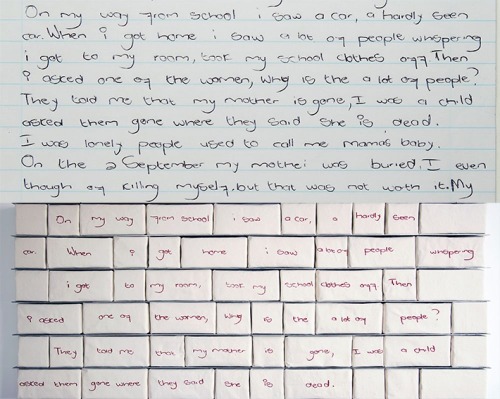 On my way from school i saw a car, a hardly seen
car. When i got home i saw a lot of people whispering
i got to my room, took my school clothes off. Then
i asked one of the women, why is the a lot of people?
They told me that my mother is gone, I was a child
asked them gone where they said she is dead.
I was lonely people used to call me mamas baby.
On the 2 September my mother was buried. I even
though of killing myself, but that was not worth it. My
On my way from school i saw a car, a hardly seen
car. When i got home i saw a lot of people whispering
i got to my room, took my school clothes off Then
i asked one of the women, why is the a lot of people?
They told me that my mother is gone, I was a child
asked them gone where they said she is dead.